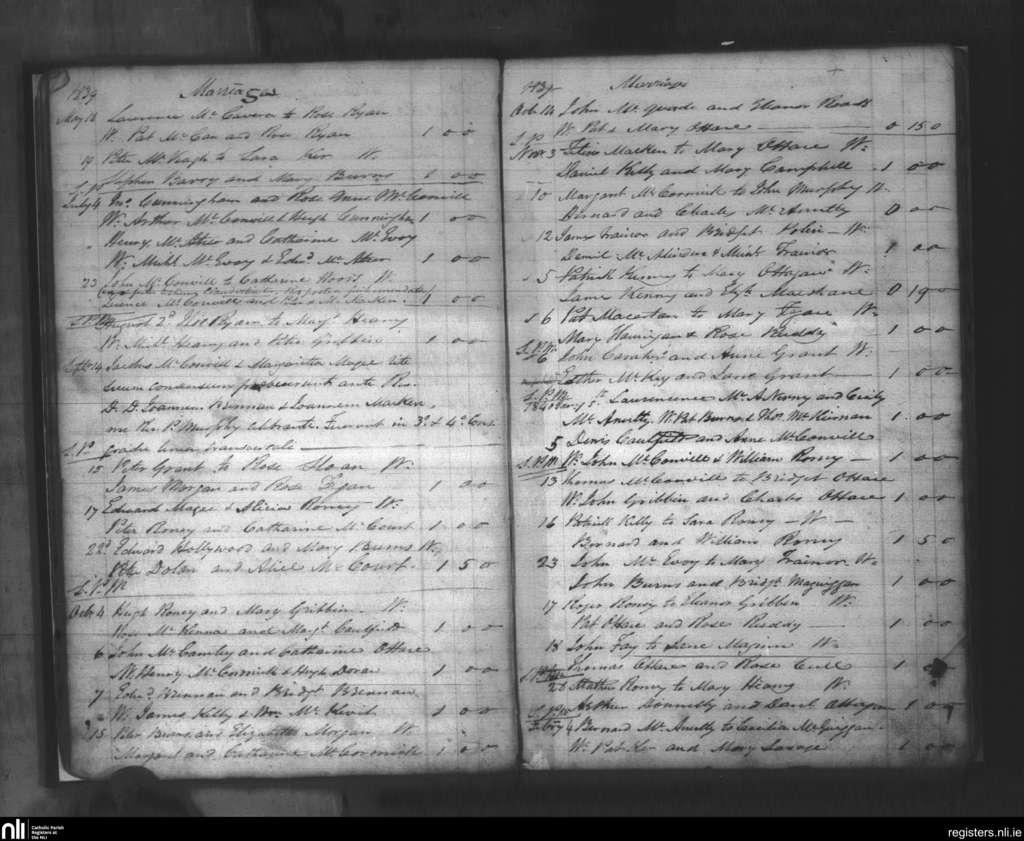 1839 Marriages
May 14 Lawrence Mc Cavera to Rose Ryan
W. Pat Mc Can and Rose Ryan 1 0 0
19 Peter Mc Veagh to Sara Keir W.
Stephen Barry and Mary Burns 1 0 0
July 4 Jno. Cunningham and Rose Anne Mc Convill
W. Arthur Mc Convill & Hugh Cunningham 1 0 0
" Henry Mc Ateer and Catharine Mc Evoy
W. Michl. Mc Evoy & Edwd. Mc Ateer 1 0 0
23 John Mc Convill to Catherine Woods W.
Terence Mc Convill and 1 0 0
August 2d Ryan to Margt. Heany
W. Michl. Heany and Peter Gribbin 1 0 0
Septr. 14 Jacobus Mc Convill & Margarita Magee rite
suum consensum praebuerunt ante Rev.
D. D. Joannem Brennan & Joannem Macken
me Thos. P. Murphy celebrante. Fuerunt in 3o. & 4o. Cons.
gradu linea transversali
15 Peter Grant to Rose Sloan W.
James Morgan and Rose Fegan 1 0 0
17 Edward Magee & Alicia Roney W.
Peter Roney and Catharine Mc Court 1 0 0
22d. Edward Hollywood and Mary Burns W.
Peter Dolan and Alice Mc Court. 1 5 0
Octr. 4 Hugh Roney and Mary Gribbin. W.
Rose Mc Kenna and Margt. Caulfield 1 0 0
6 John Mc Camley and Catharine OHare
W. Henry Mc Cormick & Hugh Doran 1 0 0
7 Edwd. Brennan and Bridgt. Brennan
W. James Kelly & Wm. Mc Kevit 1 0 0
15 Peter Burns and Elizabeth Morgan W.
Margaret and Catharine Mc Cormick 1 0 0
1839 Marriage
Octr. 14 John Mc and Eleanor Roads
W. Pat & Mary OHare 0 15 0
Novr. 3 Macken to Mary OHare W.
Daniel Kelly and Mary Campbell 1 0 0
10 Margaret Mc Cormick to John Murphy W.
Bernard and Charles Mc Anulty 0 0 0
12 James Trainor and Bridget W.
Daniel Mc & Trainor 1 0 0
5 Patrick to Mary W.
James Kenny and Elizth. 0 19 0
6 Pat Macartan to Mary W.
Mary Hannigan & Rose Ruddy 1 0 0
26 John and Anne Grant W.
Esther Mc Kay and Jane Grant 1 0 0
1840 1st. Lawrence Mc and Cicily
Mc Anulty. W. Pat Burns & Thos. Mc Kiernan 1 0 0
5 Denis Caulfield and Anne Mc Convill
W. John Mc Convill & William Roney 1 0 0
13 Thomas Mc Convill to Bridget OHare
W. John Gribbin and Charles OHare 1 0 0
16 Patrick Kelly to Sara Roney W.
Bernard and William Roney 1 5 0
23 John Mc Evoy to Mary Trainor W.
John Burns and Bridgt. Maguiggan 1 0 0
17 Roger Roney to Eleanor Gribben W.
Pat OHare and Rose Ruddy 1 0 0
18 John Fay to Jane W.
Thomas OHare and Rose 1 0 0
26 Matthew Roney to Mary Heany W.
Arthur Donnelly and Danl. 1 0 0
Feby. 4 Bernard Mc Anulty to Cecilia Mc Griggan
W. Pat Keir and Mary Savage 1 0 0
nli
Catholic Parish
Registers at
the NLI
registers.nli.ie